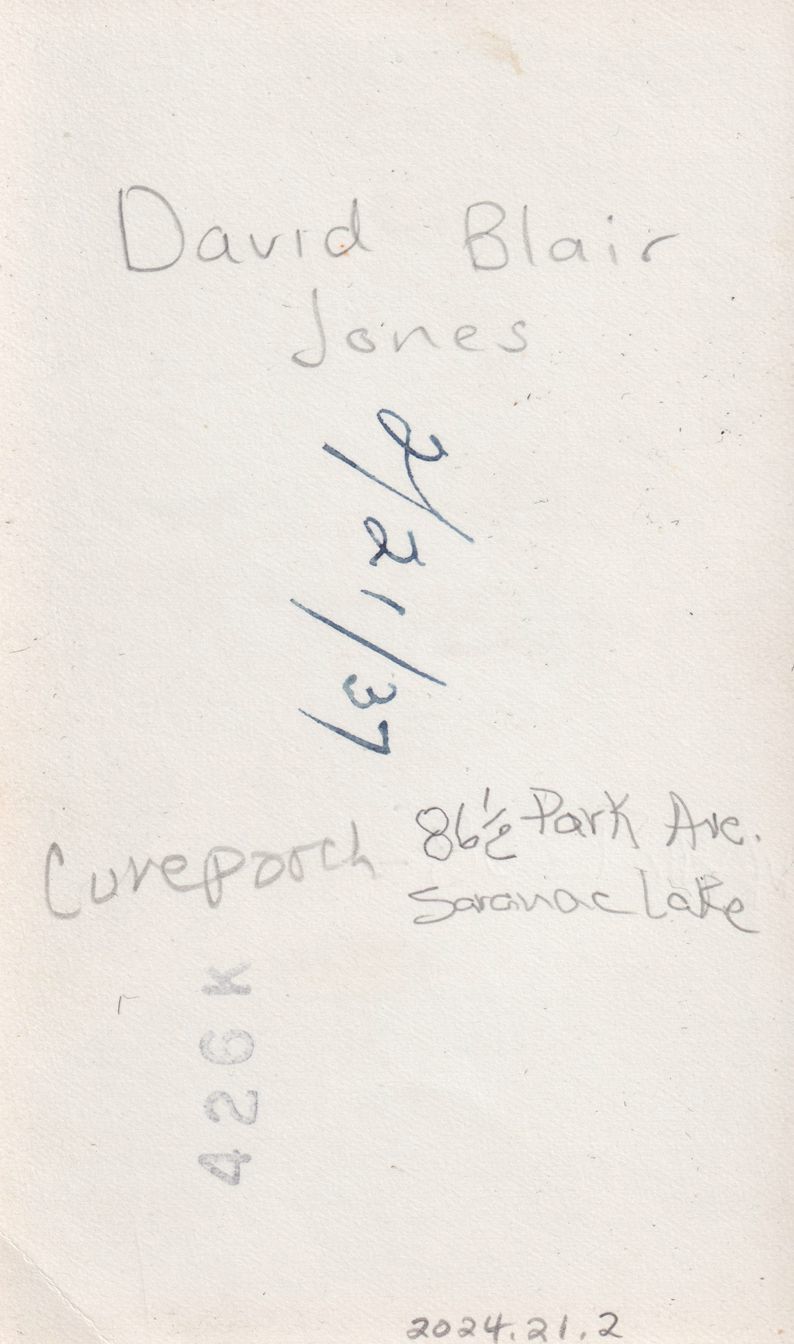 David Blair
Jones
2/21/37
Cureporch
86½ Park Ave.
Saranac Lake
426K
2024.21.2